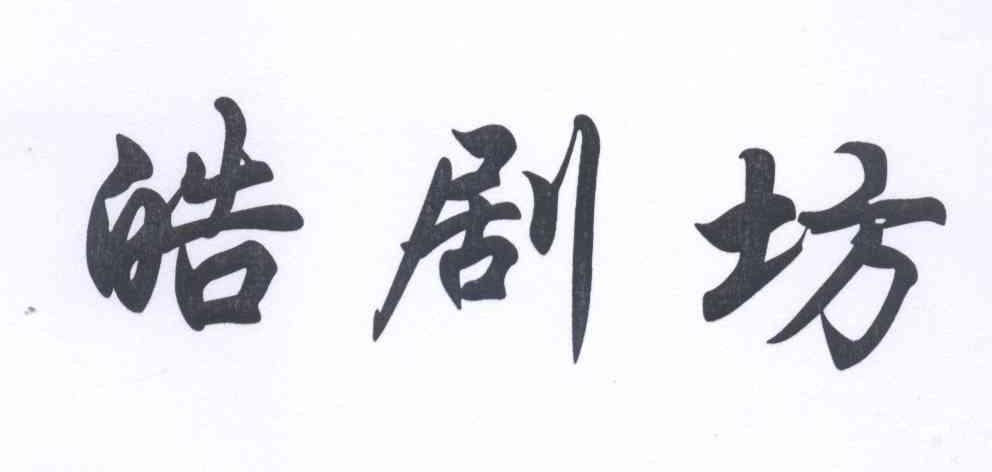 皓剧坊